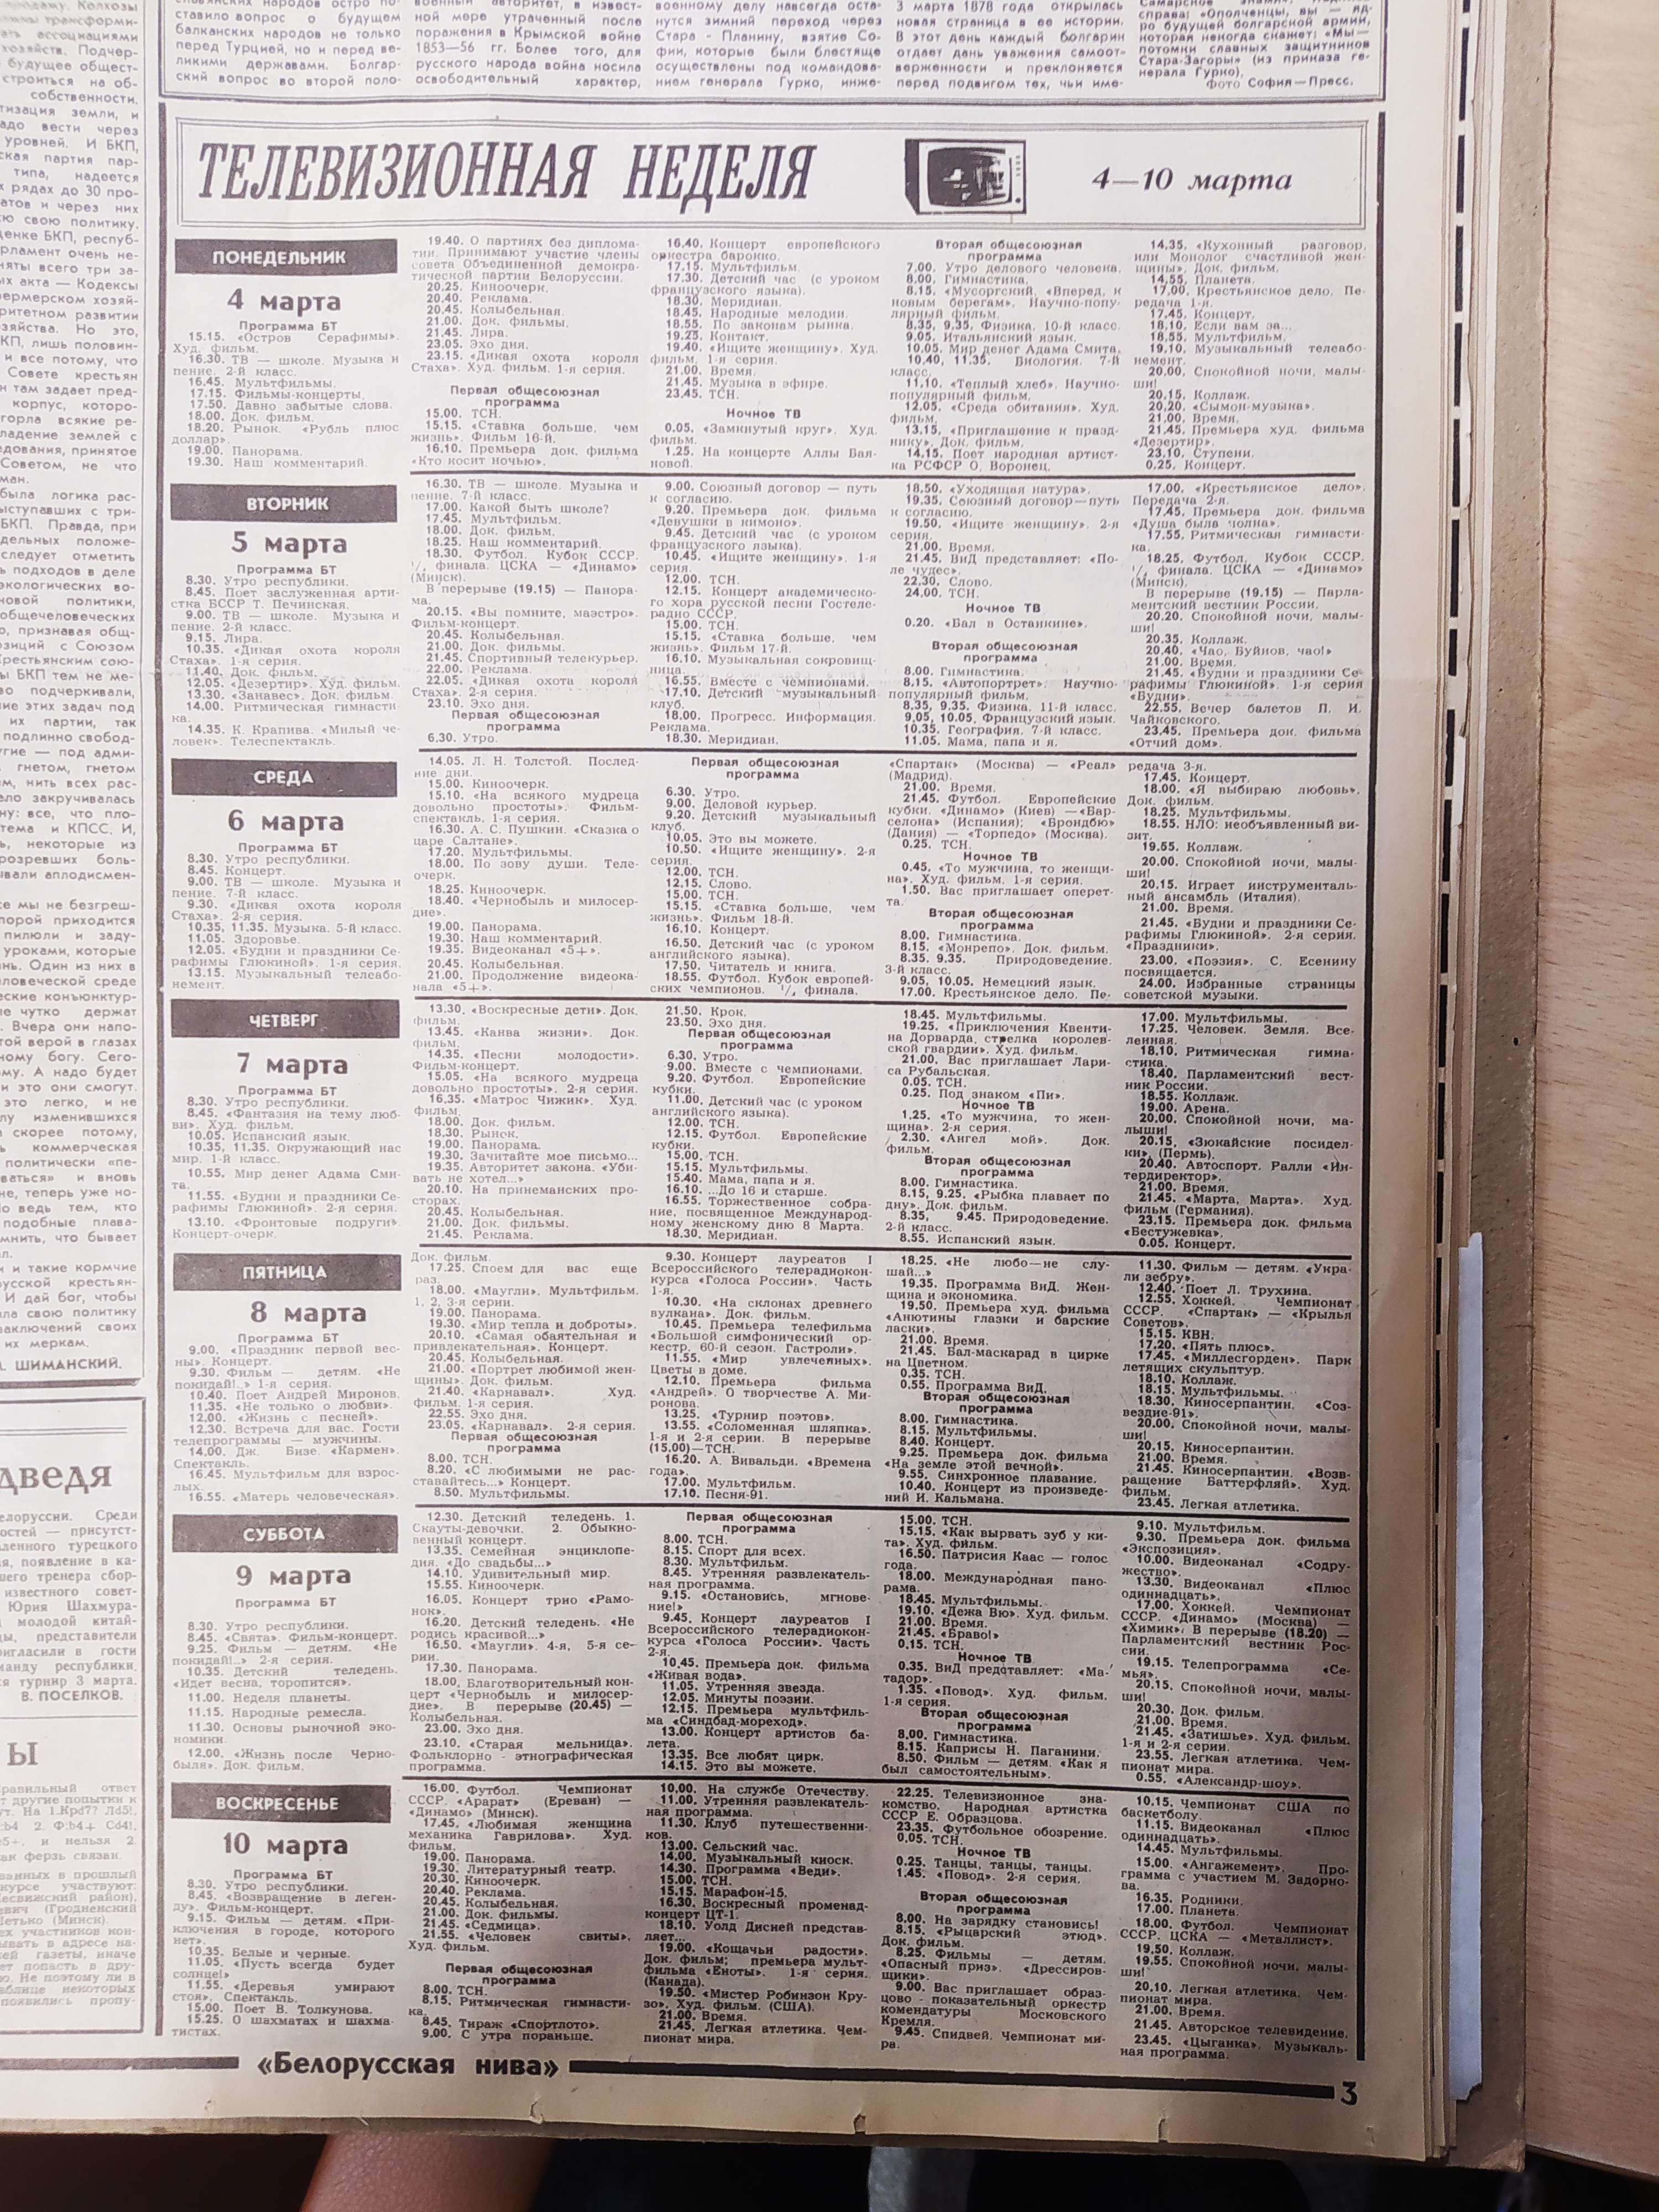 ставило вопрос о будущем
балканских народов не только
перед Турцией, но и перед ве-
ликими державами. Болгар-
ский вопрос во второй поло-
ной мере утраченный после
поражения в Крымской войне
1853—56 гг. Более того, для
русского народа война носила
освободительный характер,
нутся зимний переход через
Стара - Планину, взятие Со-
фии, которые были блестяще
осуществлены под командова-
нием генерала Гурко, инже-
3 марта 1878 года открылась
новая страница в ее истории.
В этот день каждый болгарин
отдает дань уважения самоот-
верженности и преклоняется
перед подвигом тех, чьи име-
справа: «Ополченцы, вы — яд-
ро будущей болгарской армии,
которая некогда скажет: «Мы—
потомки славных защитников
Стара-Загоры» (из приказа ге-
нерала Гурко).
Фото София—Пресс.
ТЕЛЕВИЗИОННАЯ НЕДЕЛЯ
4—10 марта
ПОНЕДЕЛЬНИК
4 марта
Программа БТ
15.15. «Остров Серафимы».
Худ. фильм.
16.30. ТВ — школе. Музыка и
пение. 2-й класс.
16.45. Мультфильмы.
17.15. Фильмы-концерты.
17.50. Давно забытые слова.
18.00. Док. фильм.
18.20. Рынок. «Рубль плюс
доллар».
19.00. Панорама.
19.30. Наш комментарий.
19.40. О партиях без диплома-
тии. Принимают участие члены
совета Объединенной демокра-
тической партии Белоруссии.
20.25. Киноочерк.
20.40. Реклама.
20.45. Колыбельная.
21.00. Док. фильмы.
21.45. Лира.
23.05. Эхо дня.
23.15. «Дикая охота короля
Стаха». Худ. фильм. 1-я серия.
Первая общесоюзная
программа
15.00. ТСН.
15.15. «Ставка больше, чем
жизнь». Фильм 16-й.
16.10. Премьера док. фильма
«Кто косит ночью».
16.40. Концерт европейского
оркестра барокко.
17.15. Мультфильм.
17.30. Детский час (с уроком
французского языка).
18.30. Меридиан.
18.45. Народные мелодии.
18.55. По законам рынка.
19.25. Контакт.
19.40. «Ищите женщину». Худ.
фильм. 1-я серия.
21.00. Время.
21.45. Музыка в эфире.
23.45. ТСН.
Ночное ТВ
0.05. «Замкнутый круг». Худ.
фильм.
1.25. На концерте Аллы Бая-
новой.
Вторая общесоюзная
программа
7.00. Утро делового человека.
8.00. Гимнастика.
8.15. «Мусоргский. «Вперед, к
новым берегам». Научно-попу-
лярный фильм.
8.35, 9.35. Физика. 10-й класс.
9.05. Итальянский язык.
10.05. Мир денег Адама Смита.
10.40, 11.35. Биология. 7-й
класс.
11.10. «Теплый хлеб». Научно-
популярный фильм.
12.05. «Среда обитания». Худ.
фильм.
13.15. «Приглашение к празд-
нику». Док. фильм.
14.15. Поет народная артист-
ка РСФСР О. Воронец.
14.35. «Кухонный разговор,
или Монолог счастливой жен-
щины». Док. фильм.
14.55. Планета.
17.00. Крестьянское дело. Пе-
редача 1-я.
17.45. Концерт.
18.10. Если вам за...
18.55. Мультфильм.
19.10. Музыкальный телеабо-
немент.
20.00. Спокойной ночи, малы-
ши!
20.15. Коллаж.
20.20. «Сымон-музыка».
21.00. Время.
21.45. Премьера худ. фильма
«Дезертир».
23.10. Ступени.
0.25. Концерт.
ВТОРНИК
5 марта
Программа БТ
8.30. Утро республики.
8.45. Поет заслуженная арти-
стка БССР Т. Печинская.
9.00. ТВ — школе. Музыка и
пение. 2-й класс.
9.15. Лира.
10.35. «Дикая охота короля
Стаха». 1-я серия.
11.40. Док. фильм.
12.05. «Дезертир». Худ. фильм.
13.30. «Занавес». Док. фильм
14.00. Ритмическая гимнасти-
ка.
14.35. К. Крапива. «Милый че-
ловек». Телеспектакль.
16.30. ТВ — школе. Музыка и
пение. 7-й класс.
17.00. Какой быть школе?
17.45. Мультфильм.
18.00. Док. фильм.
18.25. Наш комментарий.
18.30. Футбол. Кубок СССР.
финала. ЦСКА — «Динамо»
(Минск).
В перерыве (19.15) — Панора-
ма.
20.15. «Вы помните, маэстро».
Фильм-концерт.
20.45. Колыбельная.
21.00. Док. фильмы.
21.45. Спортивный телекурьер.
22.00. Реклама.
22.05. «Дикая охота короля
Стаха». 2-я серия.
23.10. Эхо дня.
Первая общесоюзная
программа
6.30. Утро.
9.00. Союзный договор — путь
к согласию.
9.20. Премьера док. фильма
«Девушки в кимоно».
9.45. Детский час (с уроком
французского языка).
10.45. «Ищите женщину». 1-я
серия.
12.00. ТСН.
12.15. Концерт академическо-
го хора русской песни Гостеле-
радио СССР.
15.00. ТСН.
15.15. «Ставка больше, чем
жизнь». Фильм 17-й.
16.10. Музыкальная сокровищ-
ница.
16.55. Вместе с чемпионами.
17.10. Детский музыкальный
клуб.
18.00. Прогресс. Информация.
Реклама.
18.30. Меридиан.
18.50. «Уходящая натура».
19.35. Союзный договор—путь
к согласию.
19.50. «Ищите женщину». 2-я
серия.
21.00. Время.
21.45. ВиД представляет: «По-
ле чудес».
22.30. Слово.
24.00. ТСН.
Ночное ТВ
0.20. «Бал в Останкине».
Вторая общесоюзная
программа
8.00. Гимнастика.
8.15. «Автопортрет». Научно-
популярный фильм.
8.35, 9.35. Физика. 11-й класс.
9.05, 10.05. Французский язык.
10.35. География. 7-й класс.
11.05. Мама, папа и я.
17.00. «Крестьянское дело».
Передача 2-я.
17.45. Премьера док. фильма
«Душа была полна».
17.55. Ритмическая гимнасти-
ка.
18.25. Футбол. Кубок СССР.
финала. ЦСКА — «Динамо»
(Минск).
В перерыве (19.15) — Парла-
ментский вестник России.
20.20. Спокойной ночи, малы-
ши!
20.35. Коллаж.
20.40. «Чао, Буйнов, чао!»
21.00. Время.
21.45. «Будни и праздники Се-
рафимы Глюкиной». 1-я серия
«Будни».
22.55. Вечер балетов П. И.
Чайковского.
23.45. Премьера док. фильма
«Отчий дом».
СРЕДА
6 марта
Программа БТ
8.30. Утро республики.
8.45. Концерт.
9.00. ТВ — школе. Музыка и
пение. 7-й класс.
9.30. «Дикая охота короля
Стаха». 2-я серия.
10.35, 11.35. Музыка. 5-й класс.
11.05. Здоровье.
12.05. «Будни и праздники Се-
рафимы Глюкиной». 1-я серия.
13.15. Музыкальный телеабо-
немент.
14.05. Л. Н. Толстой. Послед-
ние дни.
15.00. Киноочерк.
15.10. «На всякого мудреца
довольно простоты». Фильм-
спектакль. 1-я серия.
16.30. А. С. Пушкин. «Сказка о
царе Салтане».
17.20. Мультфильмы.
18.00. По зову души. Теле-
очерк.
18.25. Киноочерк.
18.40. «Чернобыль и милосер-
дие».
19.00. Панорама.
19.30. Наш комментарий.
19.35. Видеоканал «5+».
20.45. Колыбельная.
21.00. Продолжение видеока-
нала «5+».
Первая общесоюзная
программа
6.30. Утро.
9.00. Деловой курьер.
9.20. Детский музыкальный
клуб.
10.05. Это вы можете.
10.50. «Ищите женщину». 2-я
серия.
12.00. ТСН.
12.15. Слово.
15.00. ТСН.
15.15. «Ставка больше, чем
жизнь». Фильм 18-й.
16.10. Концерт.
16.50. Детский час (с уроком
английского языка).
17.50. Читатель и книга.
18.55. Футбол. Кубок европей-
ских чемпионов. финала.
«Спартак» (Москва) — «Реал»
(Мадрид).
21.00. Время.
21.45. Футбол. Европейские
кубки. «Динамо» (Киев) —«Бар-
селона» (Испания); «Брондбю»
(Дания) — «Торпедо» (Москва).
0.25. ТСН.
Ночное ТВ
0.45. «То мужчина, то женщи-
на». Худ. фильм. 1-я серия.
1.50. Вас приглашает оперет-
та.
Вторая общесоюзная
программа
8.00. Гимнастика.
8.15. «Монрепо». Док. фильм.
8.35. 9.35. Природоведение.
3-й класс.
9.05, 10.05. Немецкий язык.
17.00. Крестьянское дело. Пе-
редача 3-я.
17.45. Концерт.
18.00. «Я выбираю любовь».
Док. фильм.
18.25. Мультфильмы.
18.55. НЛО: необъявленный ви-
зит.
19.55. Коллаж.
20.00. Спокойной ночи, малы-
ши!
20.15. Играет инструменталь-
ный ансамбль (Италия).
21.00. Время.
21.45. «Будни и праздники Се-
рафимы Глюкиной». 2-я серия.
«Праздники».
23.00. «Поэзия». С. Есенину
посвящается.
24.00. Избранные страницы
советской музыки.
ЧЕТВЕРГ
7 марта
Программа БТ
8.30. Утро республики.
8.45. «Фантазия на тему люб-
ви». Худ. фильм.
10.05. Испанский язык.
10.35, 11.35. Окружающий нас
мир. 1-й класс.
10.55. Мир денег Адама Сми-
та.
11.55. «Будни и праздники Се-
рафимы Глюкиной». 2-я серия.
13.10. «Фронтовые подруги».
Концерт-очерк.
13.30. «Воскресные дети». Док.
фильм.
13.45. «Канва жизни». Док.
фильм.
14.35. «Песни молодости».
Фильм-концерт.
15.05. «На всякого мудреца
довольно простоты». 2-я серия.
16.35. «Матрос Чижик». Худ.
фильм.
18.00. Док. фильм.
18.30. Рынок.
19.00. Панорама.
19.30. Зачитайте мое письмо...
19.35. Авторитет закона. «Уби-
вать не хотел...»
20.10. На принеманских про-
сторах.
20.45. Колыбельная.
21.00. Док. фильмы.
21.45. Реклама.
21.50. Крок.
23.50. Эхо дня.
Первая общесоюзная
программа
6.30. Утро.
9.00. Вместе с чемпионами.
9.20. Футбол. Европейские
кубки.
11.00. Детский час (с уроком
английского языка).
12.00. ТСН.
12.15. Футбол. Европейские
кубки.
15.00. ТСН.
15.15. Мультфильмы.
15.40. Мама, папа и я.
16.10. ...До 16 и старше.
16.55. Торжественное собра-
ние, посвященное Международ-
ному женскому дню 8 Марта.
18.30. Меридиан.
18.45. Мультфильмы.
19.25. «Приключения Квенти-
на Дорварда, стрелка королев-
ской гвардии». Худ. фильм.
21.00. Вас приглашает Лари-
са Рубальская.
0.05. ТСН.
0.25. Под знаком «Пи».
Ночное ТВ
1.25. «То мужчина, то жен-
щина». 2-я серия.
2.30. «Ангел мой». Док.
фильм.
Вторая общесоюзная
программа
8.00. Гимнастика.
8.15, 9.25. «Рыбка плавает по
дну». Док. фильм.
8.35, 9.45. Природоведение.
2-й класс.
8.55. Испанский язык.
17.00. Мультфильмы.
17.25. Человек. Земля. Все-
ленная.
18.10. Ритмическая гимна-
стика.
18.40. Парламентский вест-
ник России.
18.55. Коллаж.
19.00. Арена.
20.00. Спокойной ночи, ма-
лыши!
20.15. «Зюкайские посидел-
ки». (Пермь).
20.40. Автоспорт. Ралли «Ин-
тердиректор».
21.00. Время.
21.45. «Марта, Марта». Худ.
фильм (Германия).
23.15. Премьера док. фильма
«Бестужевка».
0.05. Концерт.
ПЯТНИЦА
8 марта
Программа БТ
9.00. «Праздник первой вес-
ны». Концерт.
9.30. Фильм — детям. «Не
покидай!..» 1-я серия.
10.40. Поет Андрей Миронов.
11.35. «Не только о любви».
12.00. «Жизнь с песней».
12.30. Встреча для вас. Гости
телепрограммы — мужчины.
14.00. Дж. Бизе. «Кармен».
Спектакль.
16.45. Мультфильм для взрос-
лых.
16.55. «Матерь человеческая».
Док. фильм.
17.25. Споем для вас еще
раз.
18.00. «Маугли». Мультфильм.
1, 2, 3-я серии.
19.00. Панорама.
19.30. «Мир тепла и доброты».
20.10. «Самая обаятельная и
привлекательная». Концерт.
20.45. Колыбельная.
21.00. «Портрет любимой жен-
щины». Док. фильм.
21.40. «Карнавал». Худ.
фильм. 1-я серия.
22.55. Эхо дня.
23.05. «Карнавал». 2-я серия.
Первая общесоюзная
программа
8.00. ТСН.
8.20. «С любимыми не рас-
ставайтесь...» Концерт.
8.50. Мультфильмы.
9.30. Концерт лауреатов I
Всероссийского телерадиокон-
курса «Голоса России». Часть
1-я.
10.30. «На склонах древнего
вулкана». Док. фильм.
10.45. Премьера телефильма
«Большой симфонический ор-
кестр. 60-й сезон. Гастроли».
11.55. «Мир увлеченных».
Цветы в доме.
12.10. Премьера фильма
«Андрей». О творчестве А. Ми-
ронова.
13.25. «Турнир поэтов».
13.55. «Соломенная шляпка».
1-я и 2-я серии. В перерыве
(15.00)—ТСН.
16.20. А. Вивальди. «Времена
года».
17.00. Мультфильм.
17.10. Песня-91.
18.25. «Не любо—не слу-
шай...»
19.35. Программа ВиД. Жен-
щина и экономика.
19.50. Премьера худ. фильма
«Анютины глазки и барские
ласки».
21.00. Время.
21.45. Бал-маскарад в цирке
на Цветном.
0.35. ТСН.
0.55. Программа ВиД.
Вторая общесоюзная
программа
8.00. Гимнастика.
8.15. Мультфильмы.
8.40. Концерт.
9.25. Премьера док. фильма
«На земле этой вечной».
9.55. Синхронное плавание.
10.40. Концерт из произведе-
ний И. Кальмана.
11.30. Фильм — детям. «Укра-
ли зебру».
12.40. Поет Л. Трухина.
12.55. Хоккей. Чемпионат
СССР. «Спартак» — «Крылья
Советов».
15.15. КВН.
17.20. «Пять плюс».
17.45. «Миллесгорден». Парк
летящих скульптур.
18.10. Коллаж.
18.15. Мультфильмы.
18.30. Киносерпантин. «Соз-
вездие-91».
20.00. Спокойной ночи, малы-
ши!
20.15. Киносерпантин.
21.00. Время.
21.45. Киносерпантин. «Возв-
ращение Баттерфляй». Худ.
фильм.
23.45. Легкая атлетика.
СУББОТА
9 марта
Программа БТ
8.30. Утро республики.
8.45. «Свята». Фильм-концерт.
9.25. Фильм — детям. «Не
покидай!..» 2-я серия.
10.35. Детский теледень.
«Идет весна, торопится».
11.00. Неделя планеты.
11.15. Народные ремесла.
11.30. Основы рыночной эко-
номики.
12.00. «Жизнь после Черно-
быля». Док. фильм.
12.30. Детский теледень. 1.
Скауты-девочки. 2. Обыкно-
венный концерт.
13.35. Семейная энциклопе-
дия. «До свадьбы...»
14.10. Удивительный мир.
15.55. Киноочерк.
16.05. Концерт трио «Рамо-
нок».
16.20. Детский теледень. «Не
родись красивой...»
16.50. «Маугли». 4-я, 5-я се-
рии.
17.30. Панорама.
18.00. Благотворительный кон-
церт «Чернобыль и милосер-
дие». В перерыве (20.45) —
Колыбельная.
23.00. Эхо дня.
23.10. «Старая мельница».
Фольклорно - этнографическая
программа.
Первая общесоюзная
программа
8.00. ТСН.
8.15. Спорт для всех.
8.30. Мультфильм.
8.45. Утренняя развлекатель-
ная программа.
9.15. «Остановись, мгнове-
ние!»
9.45. Концерт лауреатов I
Всероссийского телерадиокон-
курса «Голоса России». Часть
2-я.
10.45. Премьера док. фильма
«Живая вода».
11.05. Утренняя звезда.
12.05. Минуты поэзии.
12.15. Премьера мультфиль-
ма «Синдбад-мореход».
13.00. Концерт артистов ба-
лета.
13.35. Все любят цирк.
14.15. Это вы можете.
15.00. ТСН.
15.15. «Как вырвать зуб у ки-
та». Худ. фильм.
16.50. Патрисия Каас — голос
года.
18.00. Международная пано-
рама.
18.45. Мультфильмы.
19.10. «Дежа Вю». Худ. фильм.
21.00. Время.
21.45. «Браво!»
0.15. ТСН.
Ночное ТВ
0.35. ВиД представляет: «Ма-
тадор».
1.35. «Повод». Худ. фильм.
1-я серия.
Вторая общесоюзная
программа
8.00. Гимнастика.
8.15. Каприсы Н. Паганини.
8.50. Фильм — детям. «Как я
был самостоятельным».
9.10. Мультфильм.
9.30. Премьера док. фильма
«Экспозиция».
10.00. Видеоканал «Содру-
жество».
13.30. Видеоканал «Плюс
одиннадцать».
17.00. Хоккей. Чемпионат
СССР. «Динамо» (Москва) —
«Химик». В перерыве (18.20) —
Парламентский вестник Рос-
сии.
19.15. Телепрограмма «Се-
мья».
20.15. Спокойной ночи, малы-
ши!
20.30. Док. фильм.
21.00. Время.
21.45. «Затишье». Худ. фильм.
1-я и 2-я серии.
23.55. Легкая атлетика. Чем-
пионат мира.
0.55. «Александр-шоу».
ВОСКРЕСЕНЬЕ
10 марта
Программа БТ
8.30. Утро республики.
8.45. «Возвращение в леген-
ду». Фильм-концерт.
9.15. Фильм — детям. «При-
ключения в городе, которого
нет».
10.35. Белые и черные.
11.05. «Пусть всегда будет
солнце!»
11.55. «Деревья умирают
стоя». Спектакль.
15.00. Поет В. Толкунова.
15.25. О шахматах и шахма-
тистах.
16.00. Футбол. Чемпионат
СССР. «Арарат» (Ереван) —
«Динамо» (Минск).
17.45. «Любимая женщина
механика Гаврилова». Худ.
фильм.
19.00. Панорама.
19.30. Литературный театр.
20.30. Киноочерк.
20.40. Реклама.
20.45. Колыбельная.
21.00. Док. фильмы.
21.45. «Седмица».
21.55. «Человек свиты».
Худ. фильм.
Первая общесоюзная
программа
8.00. ТСН.
8.15. Ритмическая гимнасти-
ка.
8.45. Тираж «Спортлото».
9.00. С утра пораньше.
10.00. На службе Отечеству.
11.00. Утренняя развлекатель-
ная программа.
11.30. Клуб путешественни-
ков.
13.00. Сельский час.
14.00. Музыкальный киоск.
14.30. Программа «Веди».
15.00. ТСН.
15.15. Марафон-15.
16.30. Воскресный променад-
концерт ЦТ-1.
18.10. Уолд Дисней представ-
ляет...
19.00. «Кошачьи радости».
Док. фильм; премьера мульт-
фильма «Еноты». 1-я серия.
(Канада).
19.50. «Мистер Робинзон Кру-
зо». Худ. фильм. (США).
21.00. Время.
21.45. Легкая атлетика. Чем-
пионат мира.
22.25. Телевизионное зна-
комство. Народная артистка
СССР Е. Образцова.
23.35. Футбольное обозрение.
0.05. ТСН.
Ночное ТВ
0.25. Танцы, танцы, танцы.
1.45. «Повод». 2-я серия.
Вторая общесоюзная
программа
8.00. На зарядку становись!
8.15. «Рыцарский этюд».
Док. фильм.
8.25. Фильмы — детям.
«Опасный приз». «Дрессиров-
щики».
9.00. Вас приглашает образ-
цово - показательный оркестр
комендатуры Московского
Кремля.
9.45. Спидвей. Чемпионат ми-
ра.
10.15. Чемпионат США по
баскетболу.
11.15. Видеоканал «Плюс
одиннадцать».
14.45. Мультфильмы.
15.00. «Ангажемент». Про-
грамма с участием М. Задорно-
ва.
16.35. Родники.
17.00. Планета.
18.00. Футбол. Чемпионат
СССР. ЦСКА — «Металлист».
19.50. Коллаж.
19.55. Спокойной ночи, малы-
ши!
20.10. Легкая атлетика. Чем-
пионат мира.
21.00. Время.
21.45. Авторское телевидение.
23.45. «Цыганка». Музыкаль-
ная программа.
«Белорусская нива»
3
ШИМАНСКИЙ.
В. ПОСЕЛКОВ.